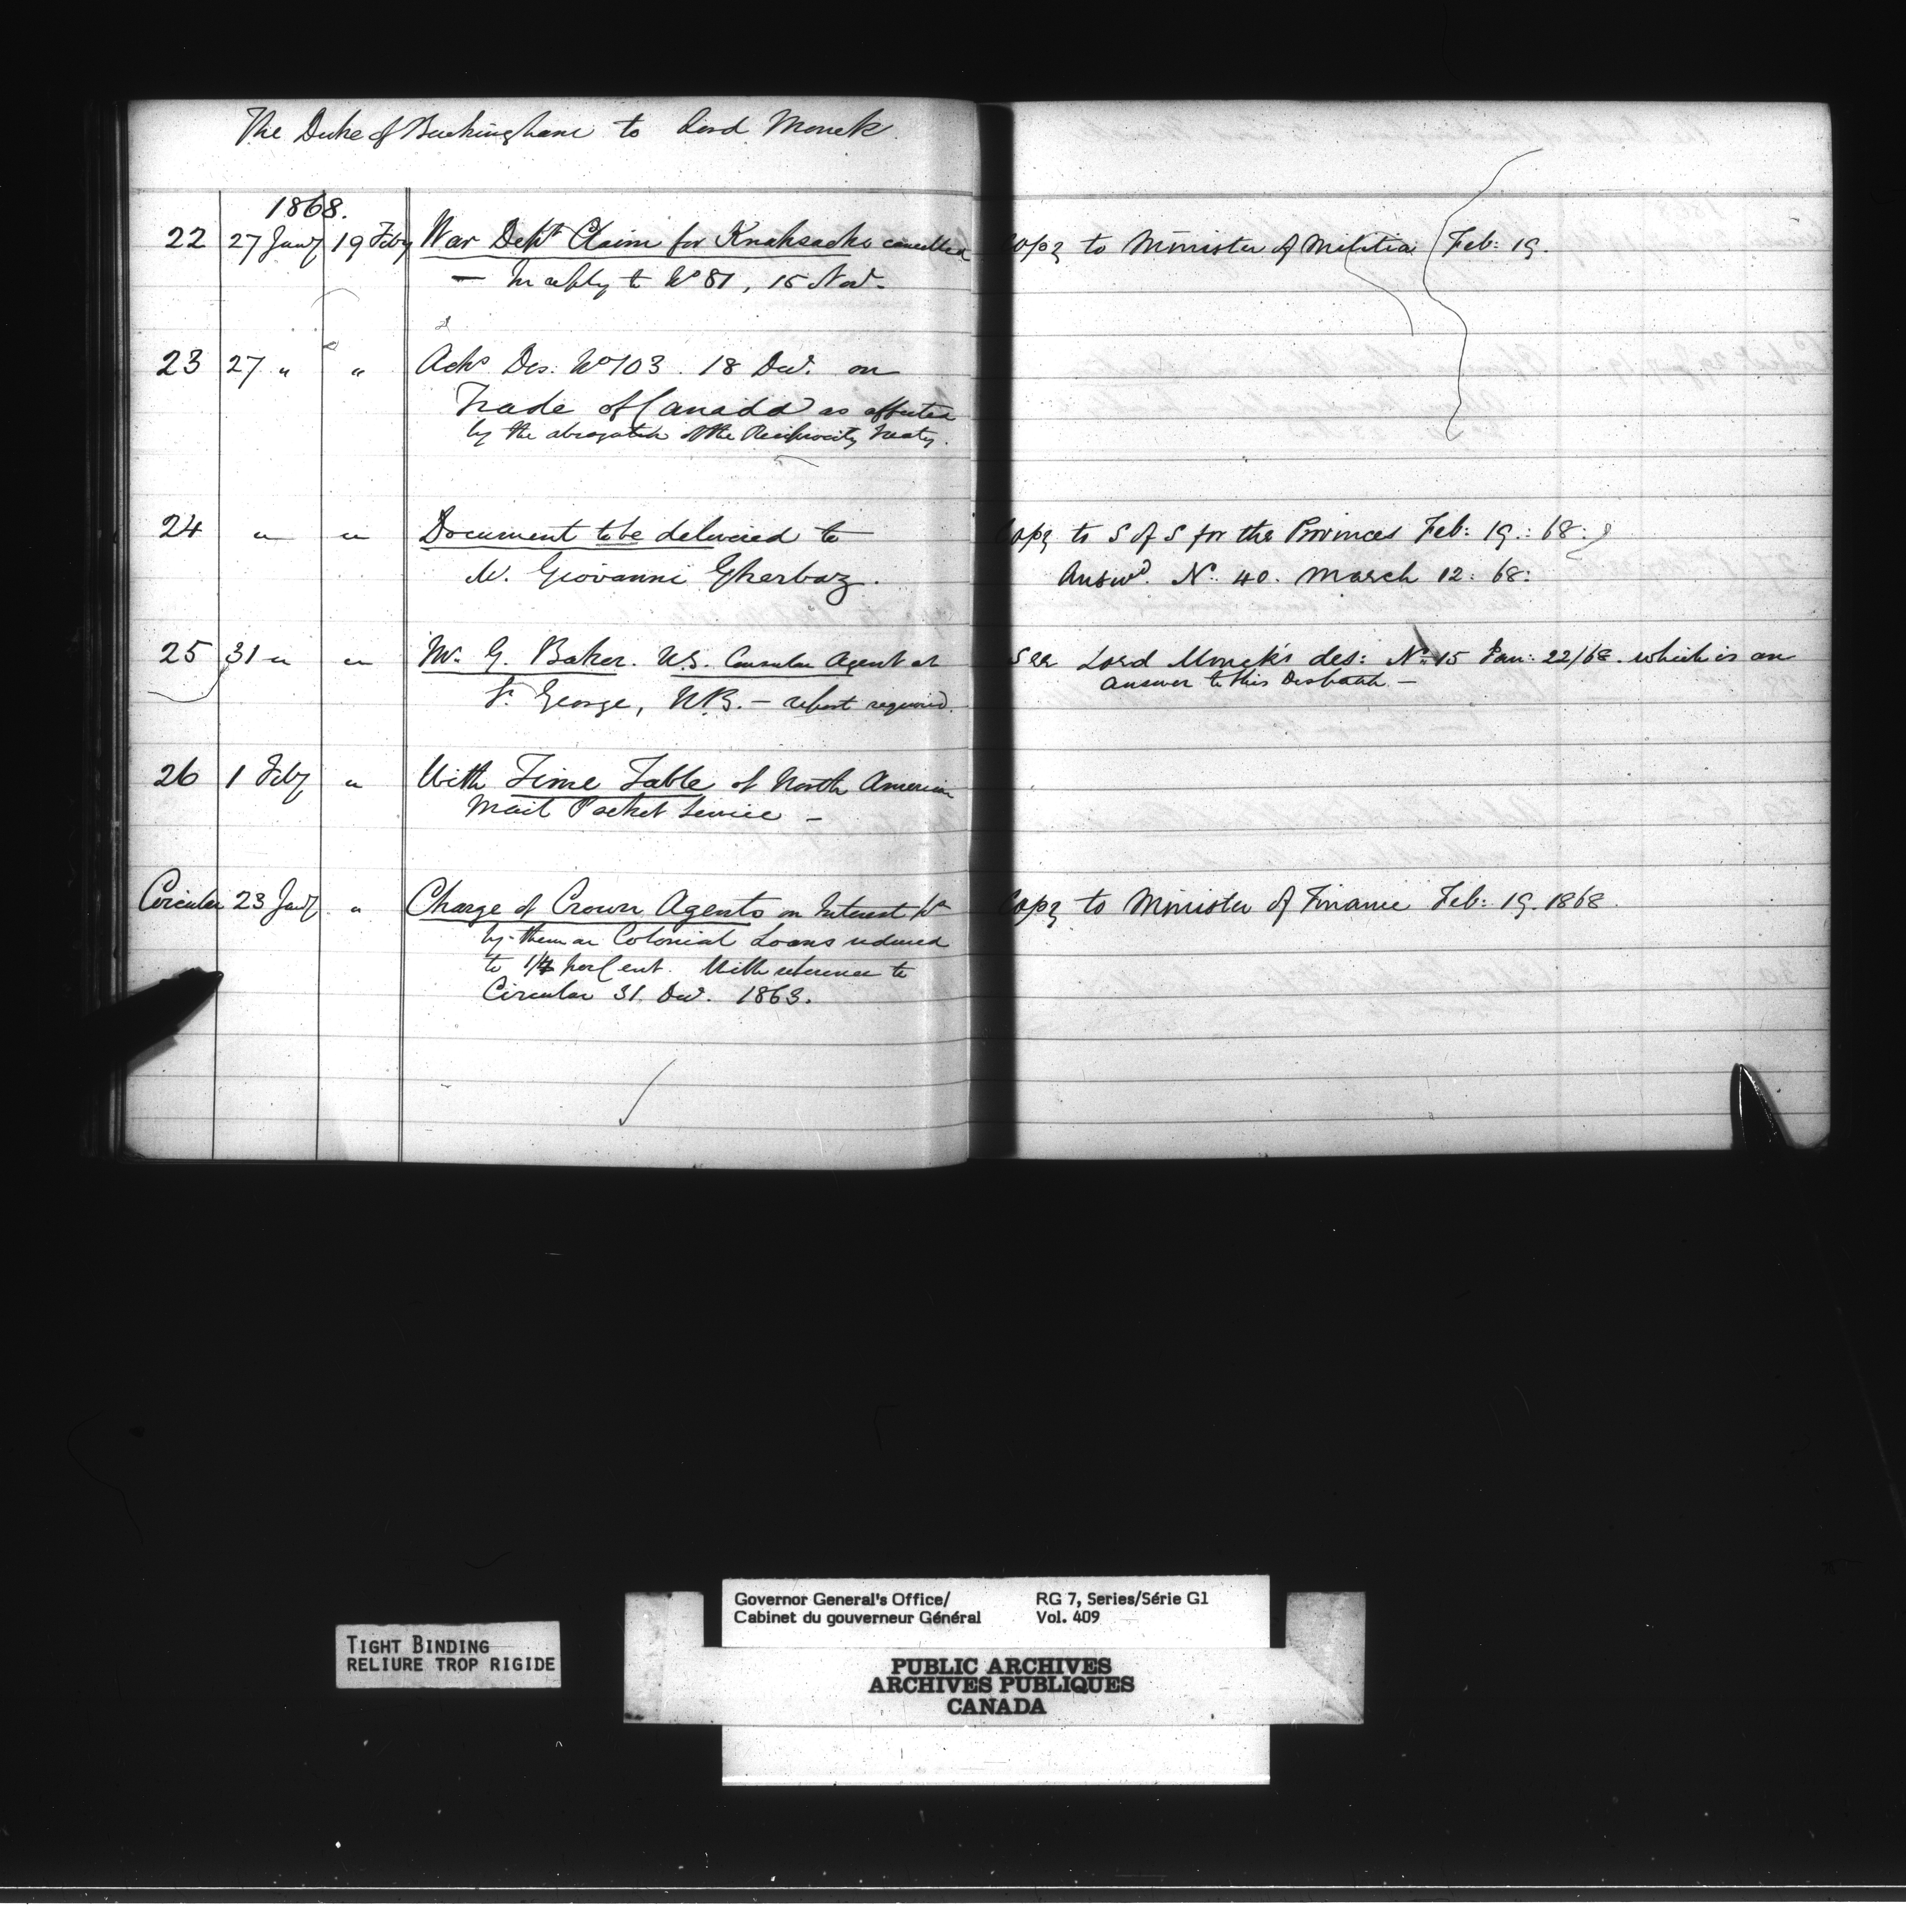 The Duke of Buckingham to Lord Monck.
1868.
22 27 Jany 19 Feby War Dept Claim for Knapsacks cancelled Copy to Minister of Militia Feb: 19.
— In reply to No 81, 15 Nov.
23 27 " " Acks Des: No 103. 18 Dec. on
Trade of Canada as affected
by the abrogation of the Reciprocity Treaty.
24 " " Document to be delivered to Copy to S of S for the Provinces Feb: 19.: 68:
M. Giovanni Gherbaz. Answd. No. 40. March 12: 68:
25 31 " " Mr. G. Baker. U.S. Consular Agent at See Lord Monck's des: No 15 Jan: 22/68. which is an
St. George, N.B. — report required. answer to this Despatch —
26 1 Feby " With Time Table of North American
Mail Packet Service —
Circular 23 Jany " Charge of Crown Agents on Interest pd Copy to Minister of Finance Feb: 19. 1868.
by them on Colonial Loans reduced
to 1/4 per Cent. With reference to
Circular 31. Dec. 1863.
Governor General's Office/ RG 7, Series/Série G1
Cabinet du gouverneur Général Vol. 409
TIGHT BINDING
RELIURE TROP RIGIDE
PUBLIC ARCHIVES
ARCHIVES PUBLIQUES
CANADA